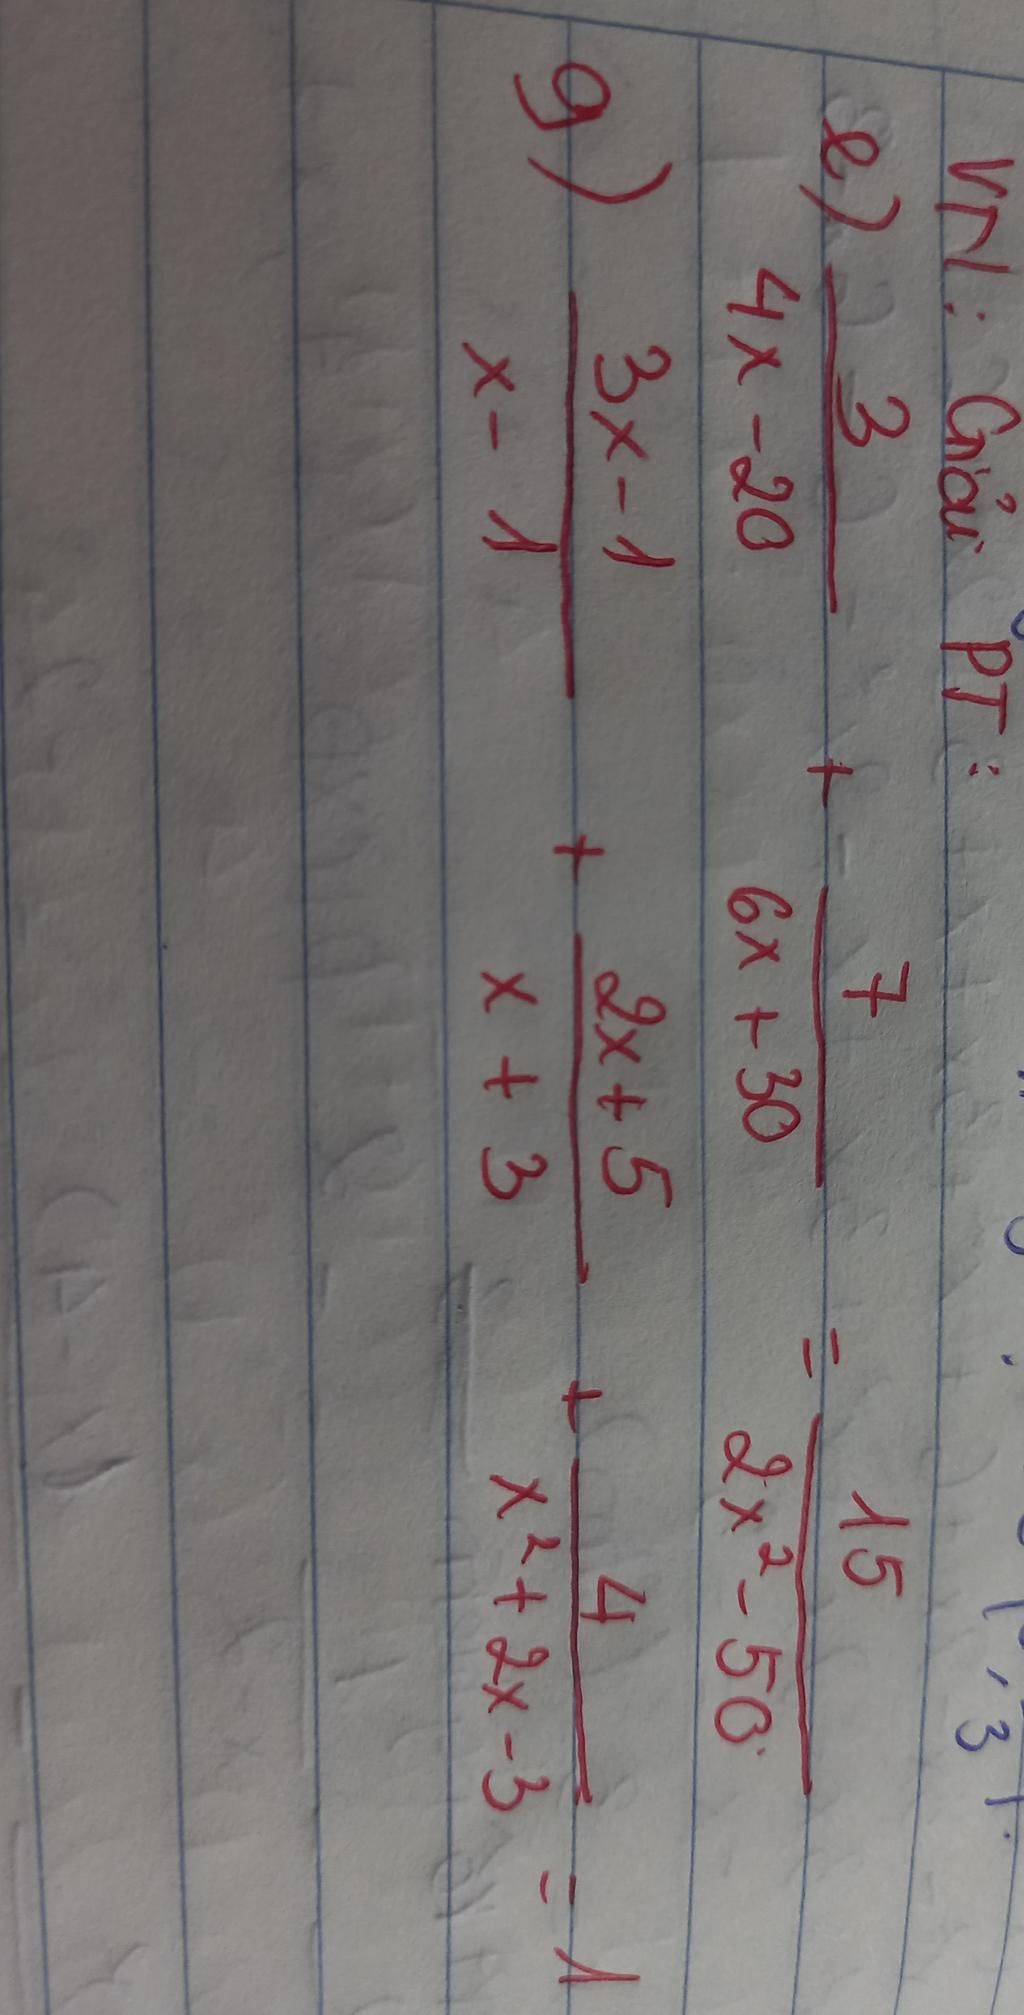 VN: Giải PT:
e) 3/(4x - 20) + 7/(6x + 30) = 15/(2x² - 50)
g) (3x - 1)/(x - 1) + (2x + 5)/(x + 3) + 4/(x² + 2x - 3) = 1